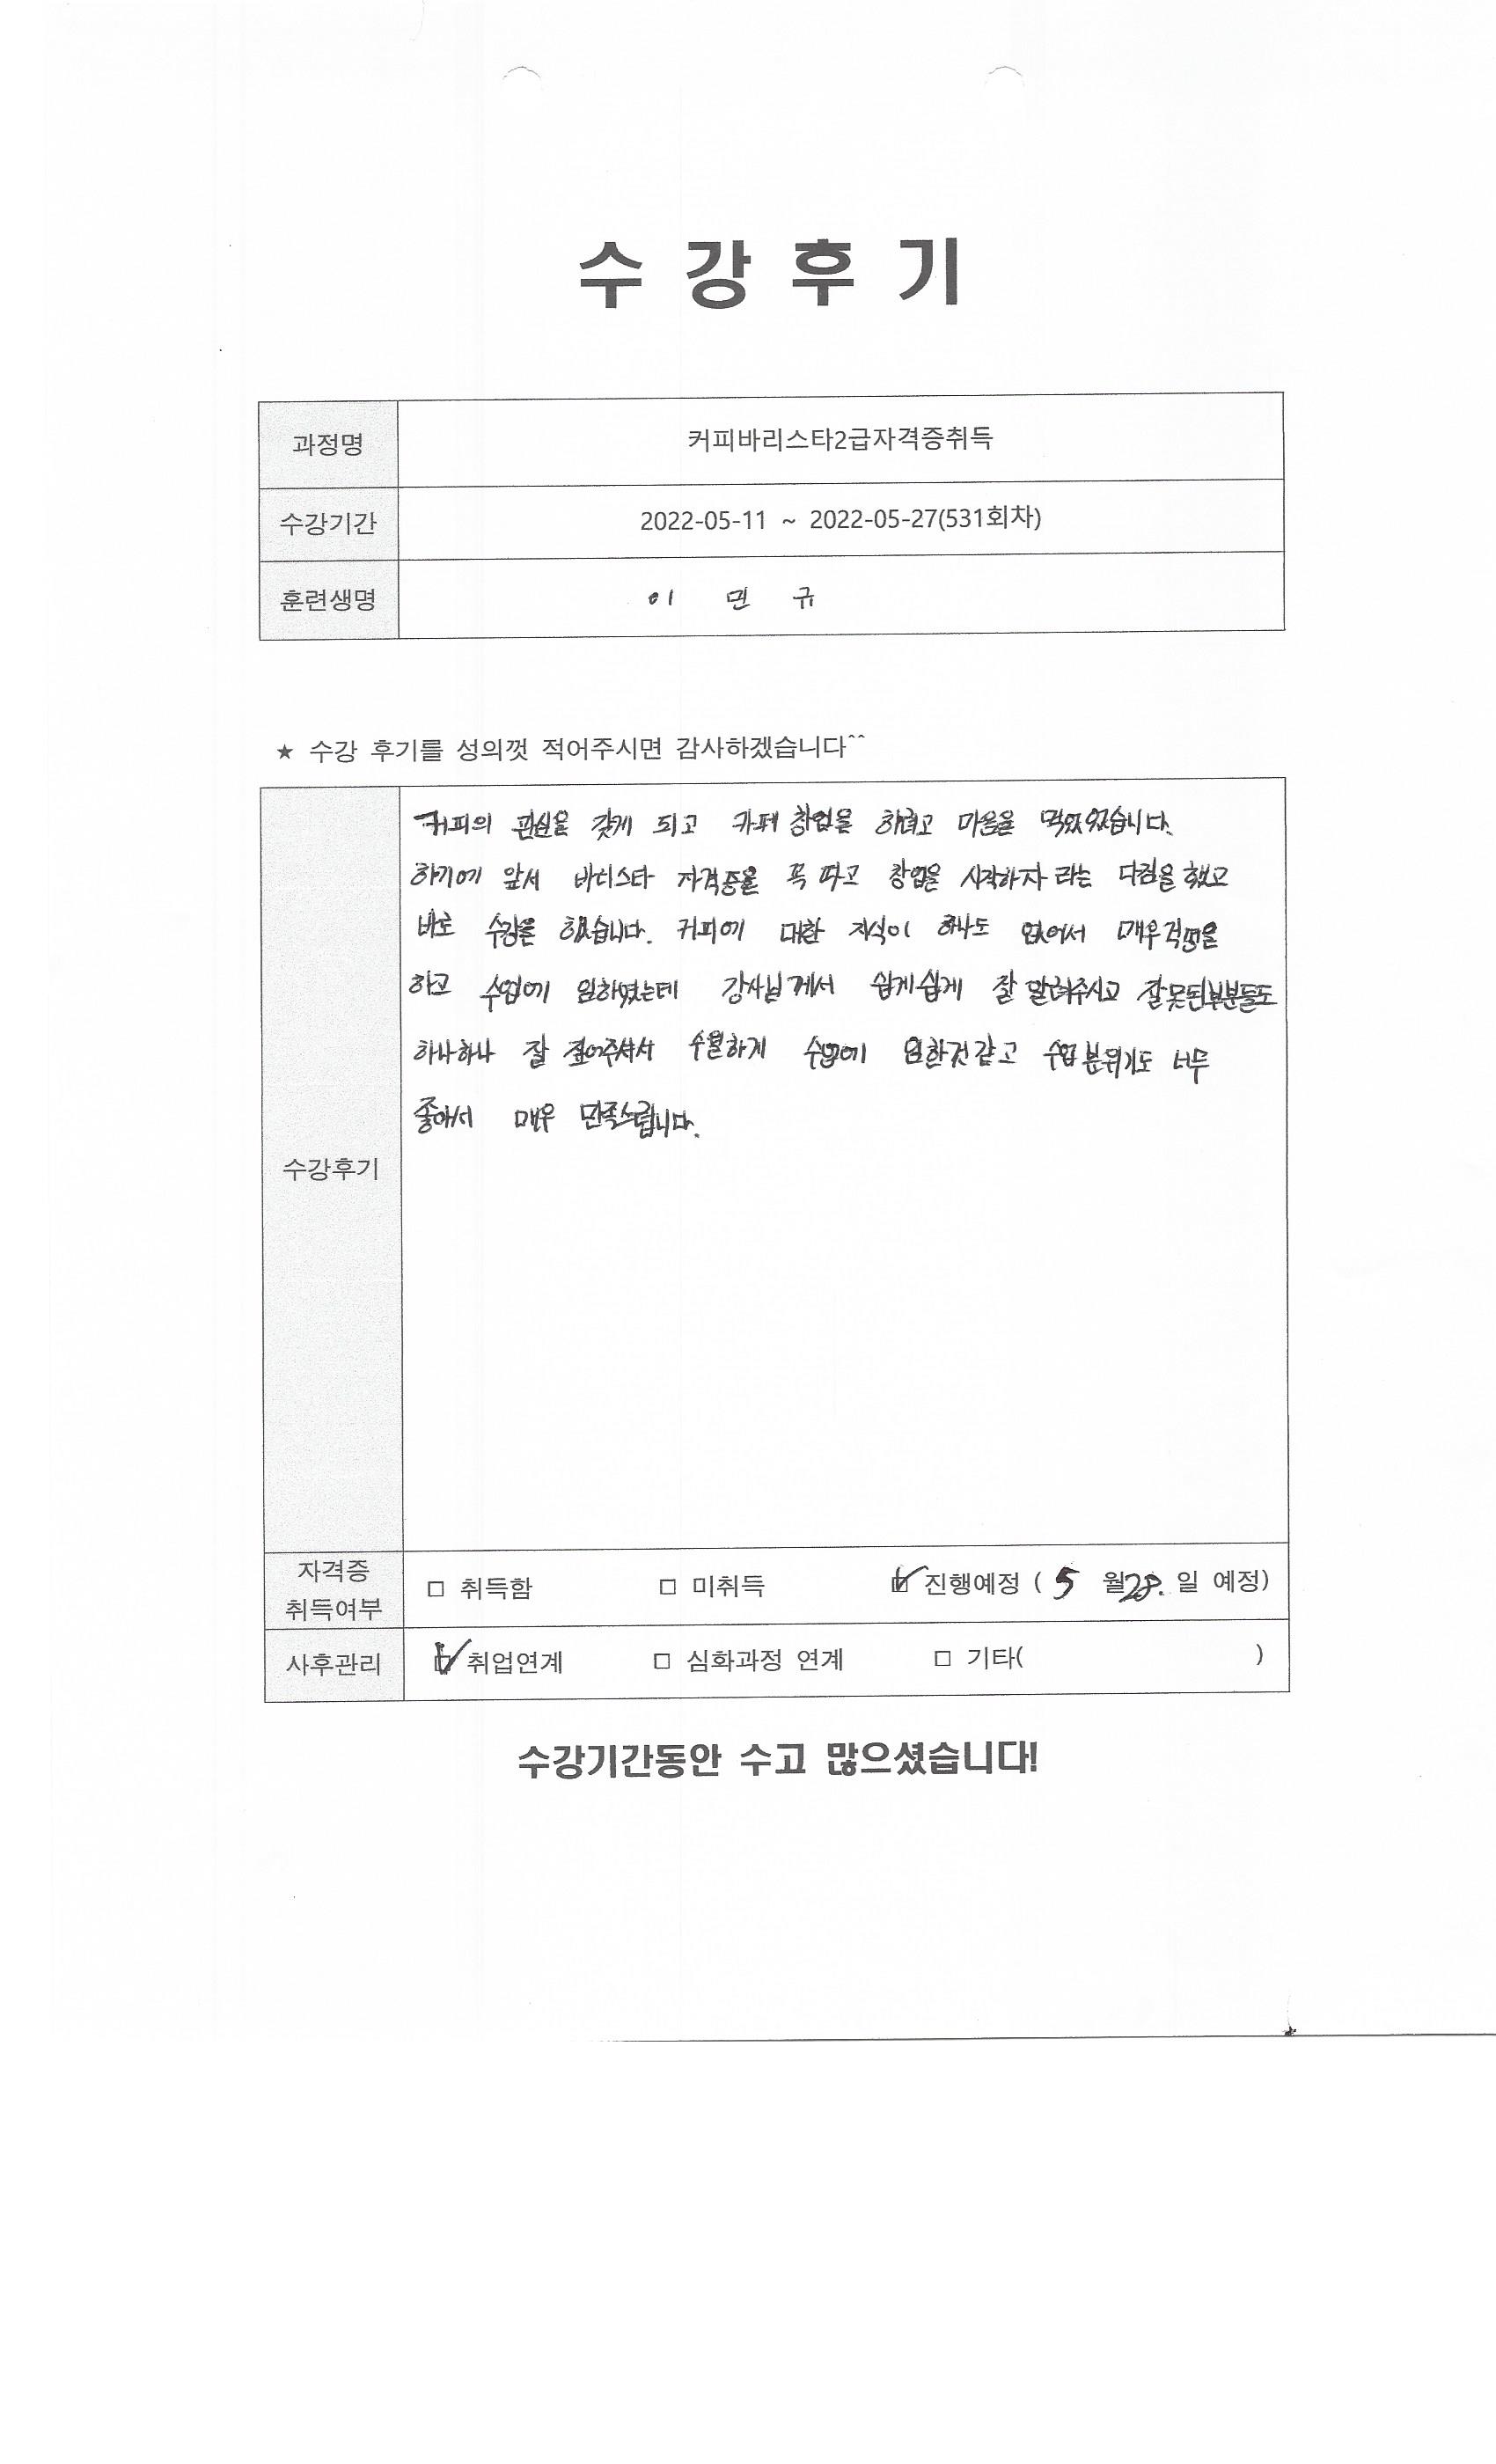 수 강 후 기
과정명 커피바리스타2급자격증취득
수강기간 2022-05-11 ~ 2022-05-27(531회차)
훈련생명 이 민 규
★ 수강 후기를 성의껏 적어주시면 감사하겠습니다^^
커피의 관심을 갖게 되고 카페 창업을 하려고 마음을 먹었었습니다.
하기에 앞서 바리스타 자격증을 꼭 따고 창업을 시작하자 라는 다짐을 했고
바로 수강을 했습니다. 커피에 대한 지식이 하나도 없어서 매우걱정을
하고 수업에 임하였는데 강사님께서 쉽게쉽게 잘 알려주시고 잘못된부분들도
하나하나 잘 짚어주셔서 수월하게 수업에 임한것같고 수업분위기도 너무
좋아서 매우 만족스럽습니다.
수강후기
자격증 취득여부 □ 취득함 □ 미취득 ☑ 진행예정 ( 5 월 28. 일 예정)
사후관리 ☑ 취업연계 □ 심화과정 연계 □ 기타( )
수강기간동안 수고 많으셨습니다!